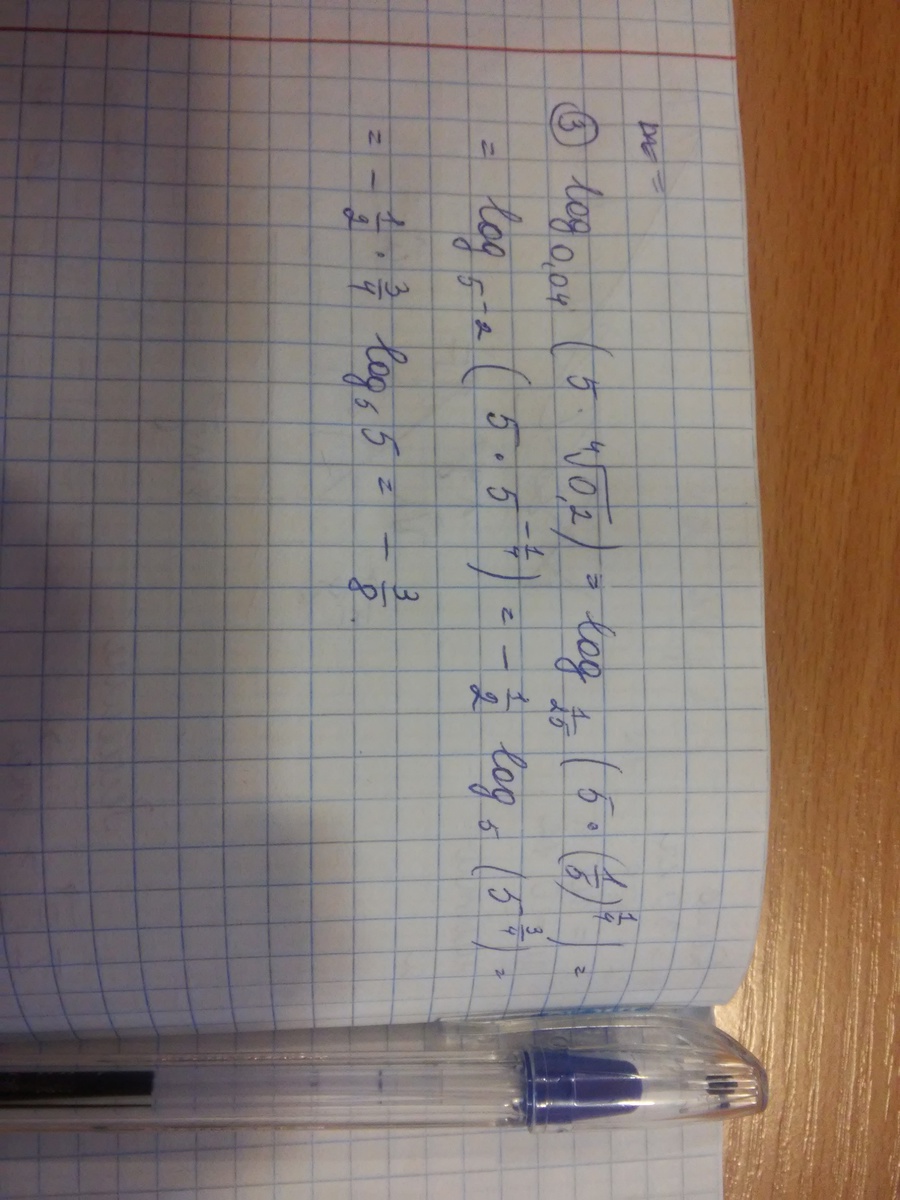 ③ log 0,04 (5 · ⁴√0,2) = log 1/25 (5 · (1/5)^1/4) =
= log 5^-2 (5 · 5^-1/4) = - 1/2 log 5 (5^3/4) =
= - 1/2 · 3/4 log 5 5 = - 3/8.